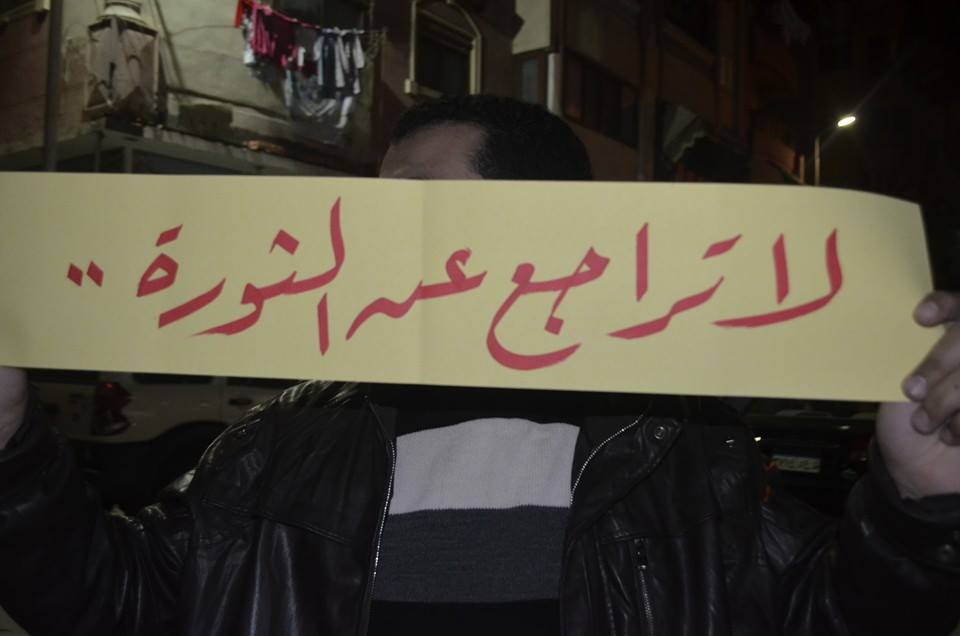 لا تراجع عن الثورة ..